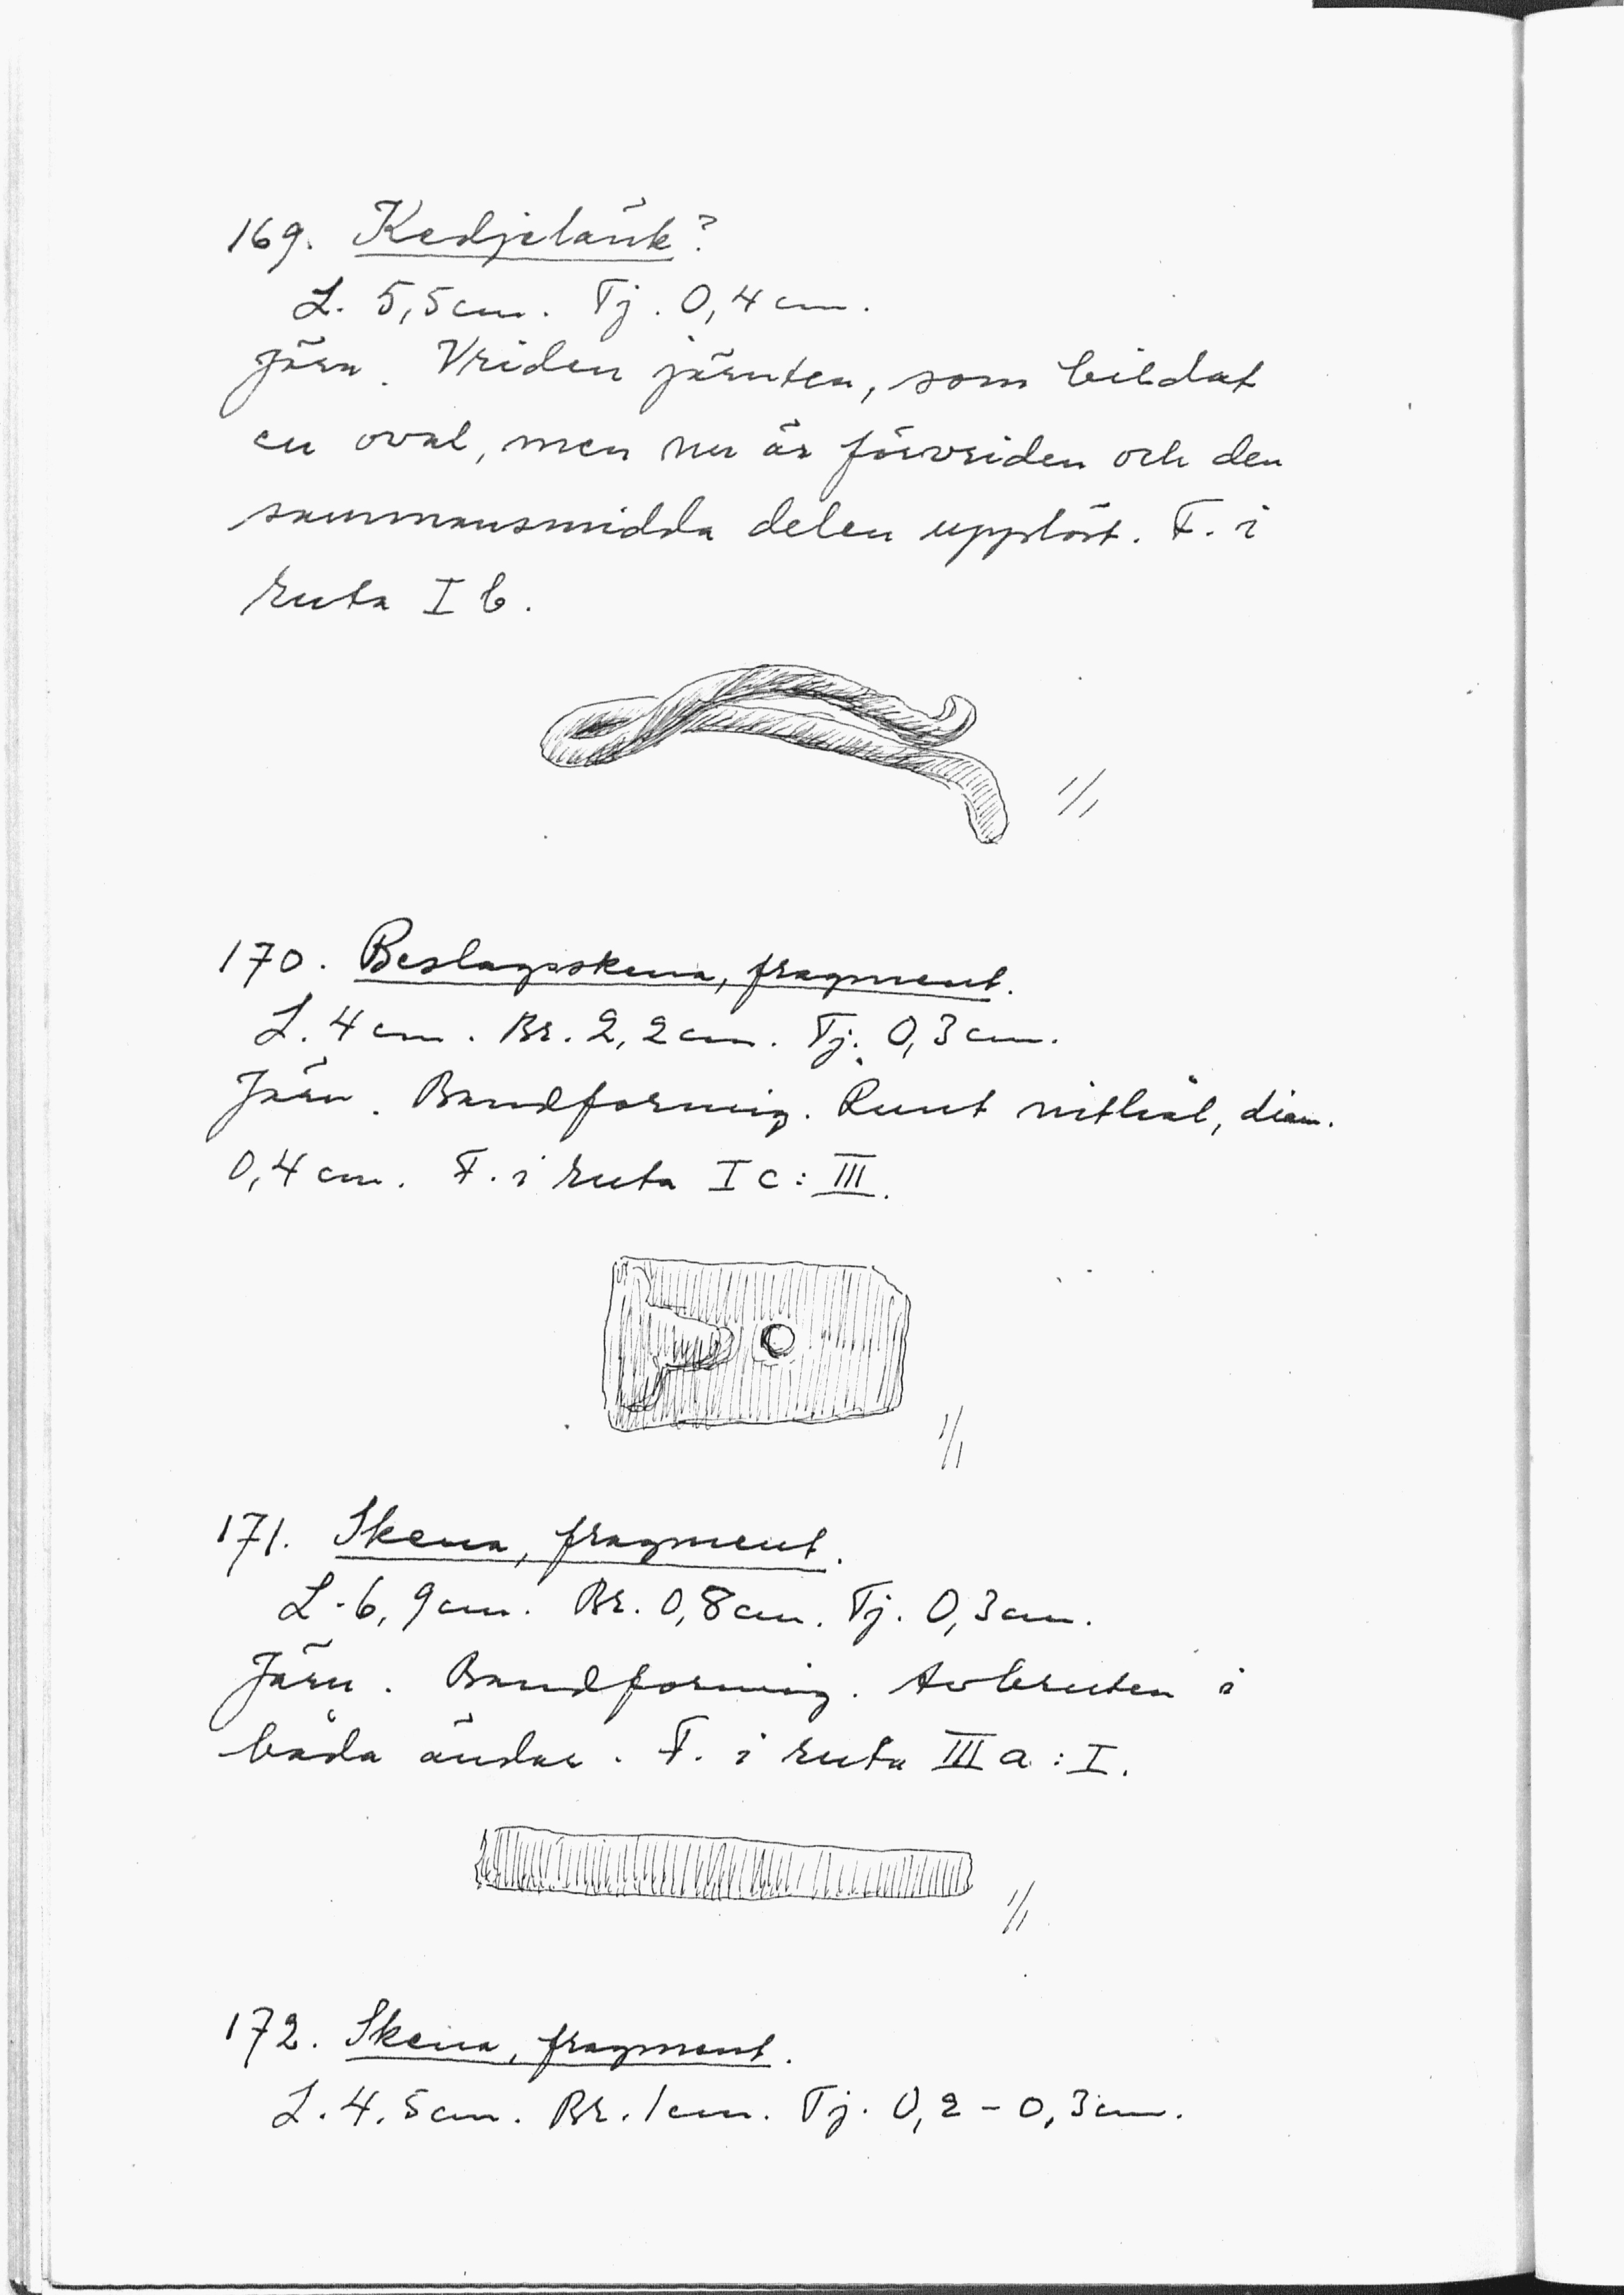 169. Kedjelänk?
L. 5,5 cm. Tj. 0,4 cm.
Järn. Vriden järnten, som bildat
en oval, men nu är förvriden och den
sammansmidda delen upplöst. F. i
ruta I b.
1/1
170. Beslagsskena, fragment.
L. 4 cm. Br. 2,2 cm. Tj. 0,3 cm.
Järn. Bandformig. Runt nithål, diam.
0,4 cm. F. i ruta I c: III.
1/1
171. Skena, fragment.
L. 6,9 cm. Br. 0,8 cm. Tj. 0,3 cm.
Järn. Bandformig. Avbruten i
båda ändar. F. i ruta III a: I.
1/1
172. Skena, fragment.
L. 4,5 cm. Br. 1 cm. Tj. 0,2 - 0,3 cm.